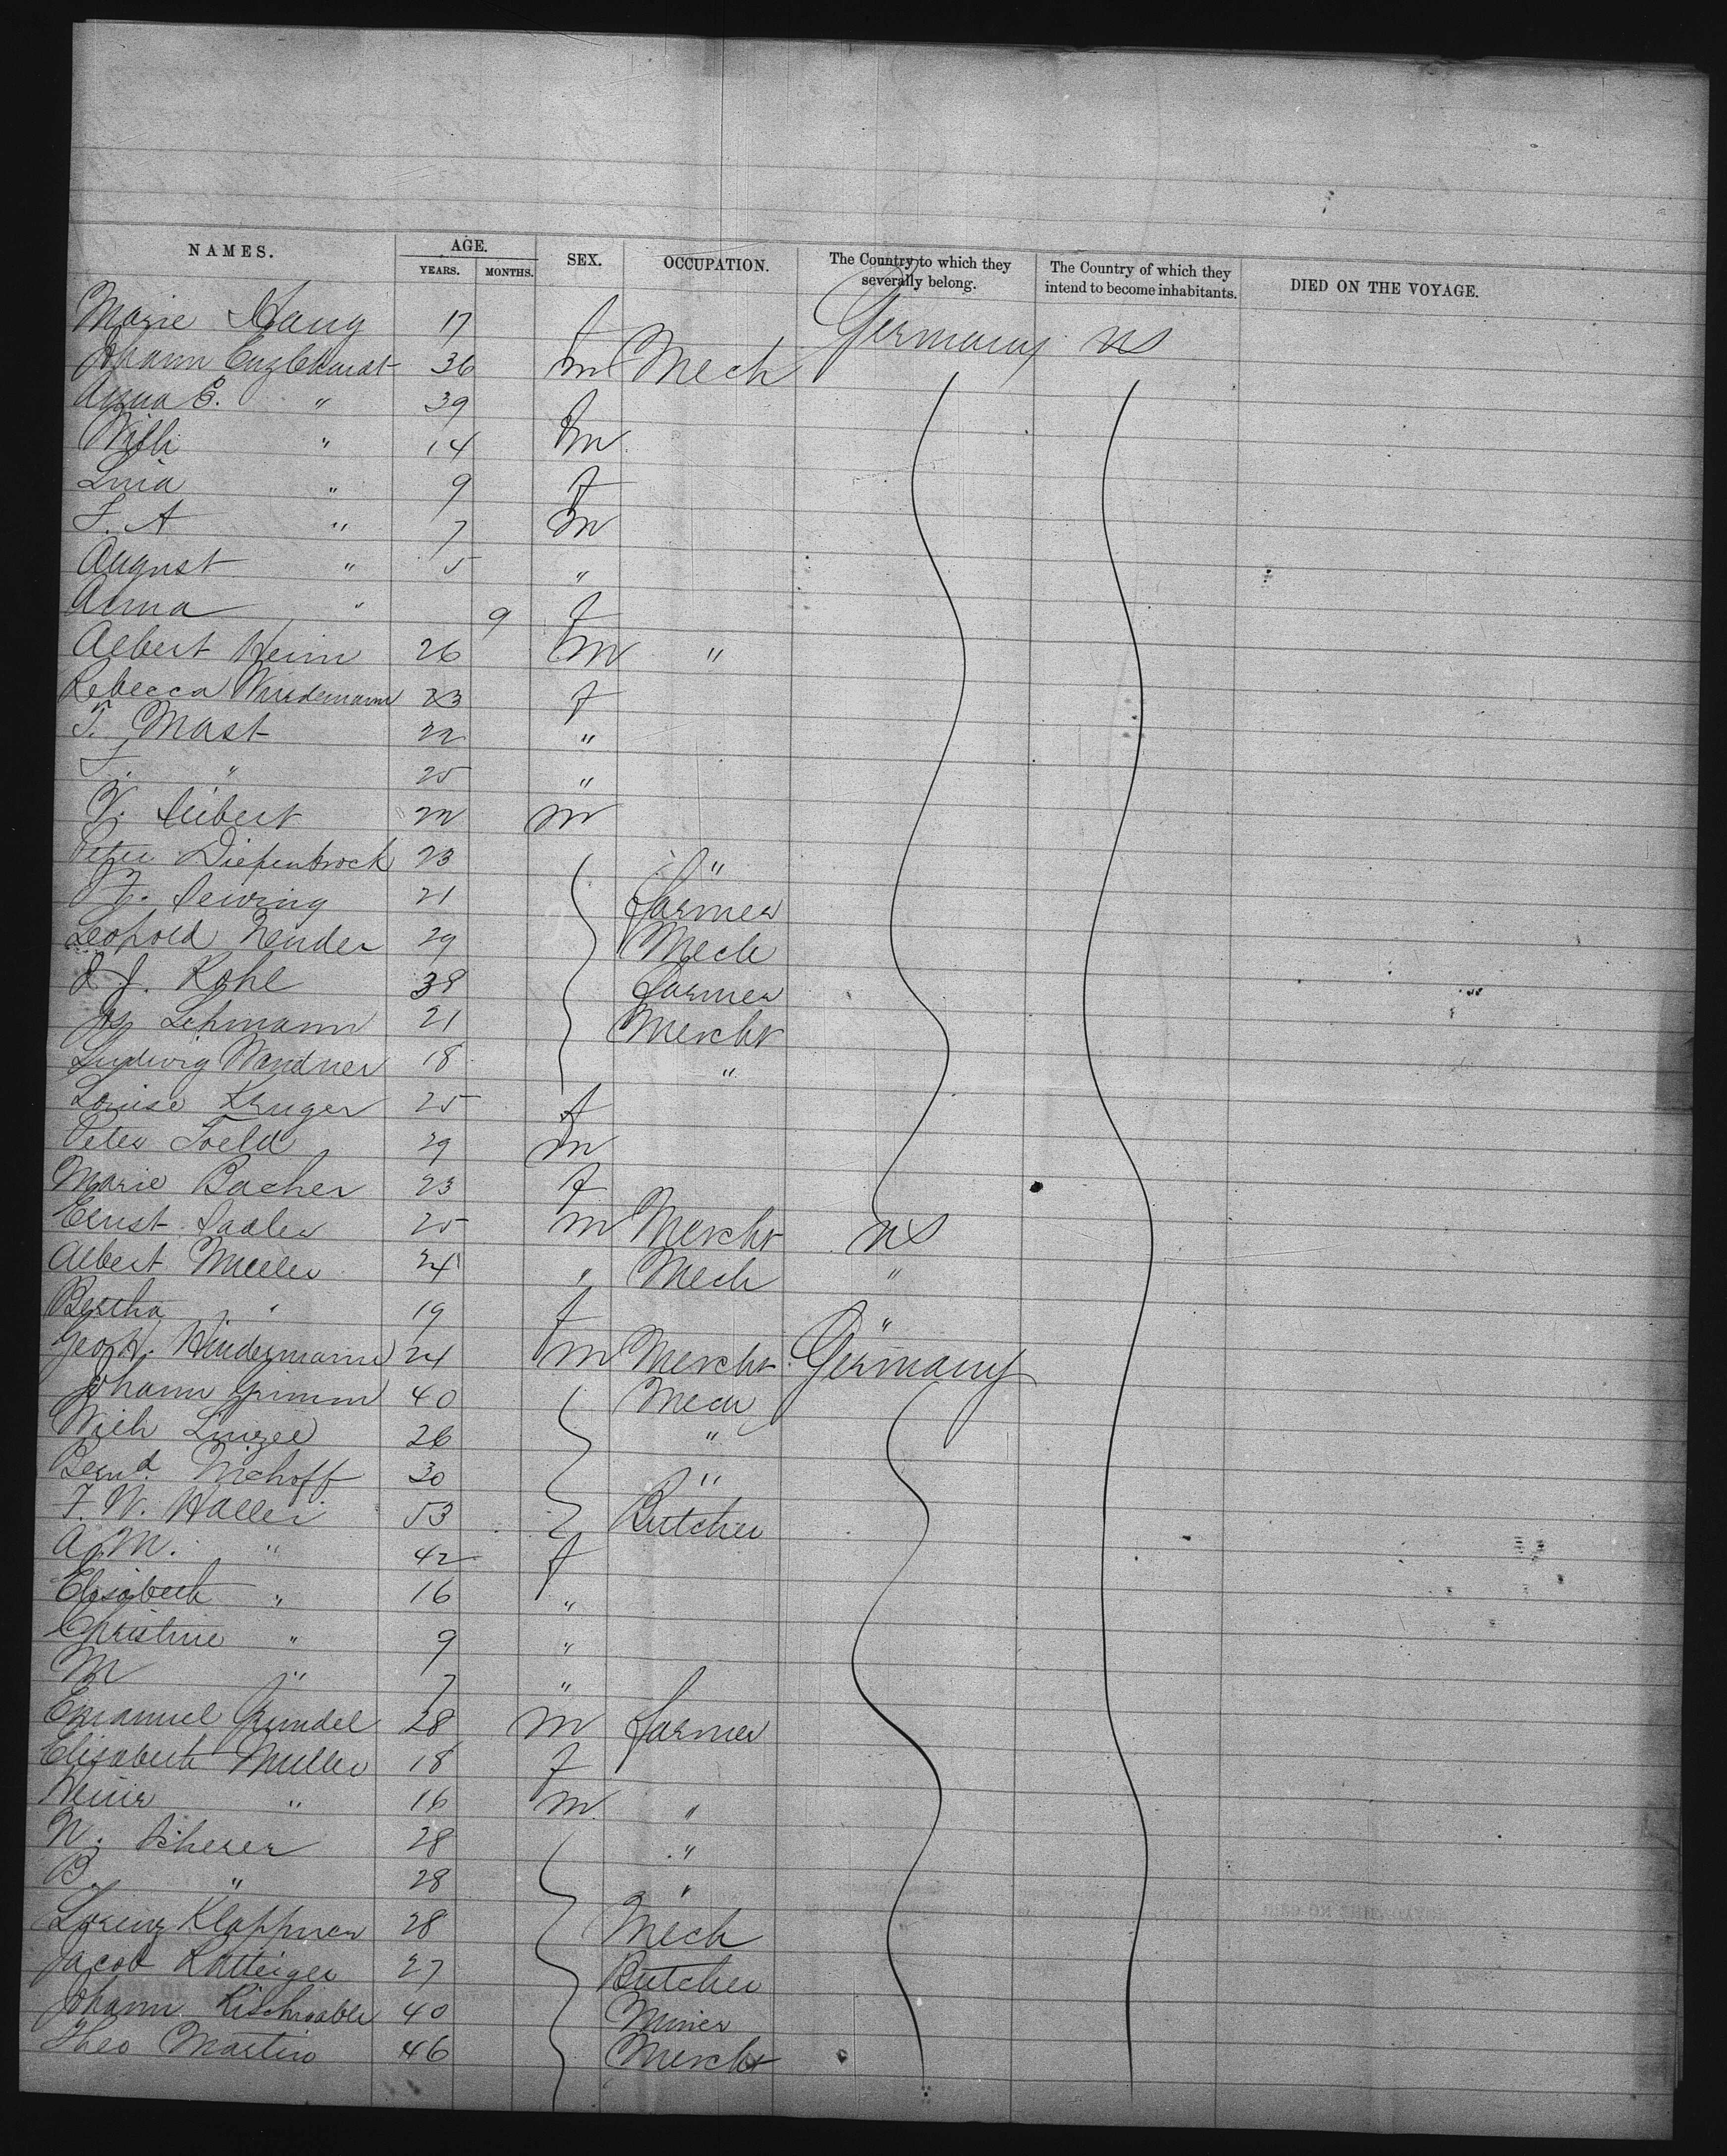 NAMES. AGE. SEX. OCCUPATION. The Country to which they severally belong. The Country of which they intend to become inhabitants. DIED ON THE VOYAGE.
YEARS. MONTHS.
Marie Haug 17 f Germany US
Johann Englehardt 36 m Mech
Anna E. " 39 f
Willi " 14 m
Lina " 9 f
F. A " 7 m
August " 5 "
Anna " 9 f
Albert Heim 26 m "
Rebecca 23 f
F. Mast 22 "
" 25 "
V. Seibert 22 m
Peter Diefenbrock 23 "
Sewing 21 farmer
Leopold Neuder 29 Mech
J. Kohl 38 farmer
Jos Lehmann 21 Mercht
Ludwig Wandner 18 "
Louise Kruger 25 f
Peter 29 m
Marie Bacher 23 f
Ernst Sadler 25 m Mercht US
Albert Mueller 24 " Mech "
Bertha " 19 f "
Geo H. Windermann 24 m Mercht Germany
Johann Grimm 40 Mech
Wilh 26 "
Bernd. Niehoff 30 "
F. W. Haller 53 Butcher
A. M. " 42 f
Elisabeth " 16 "
Christine " 9 "
M " 7 "
Emanuel Gundel 28 m farmer
Elisabeth Muller 18 f
Heinr " 16 m "
N. Scherer 28 "
B. " 28 "
Lorenz Klappner 28 Mech
Jacob Ratteiger 27 Butcher
Johann 40 Miner
Theo Martin 46 Mercht